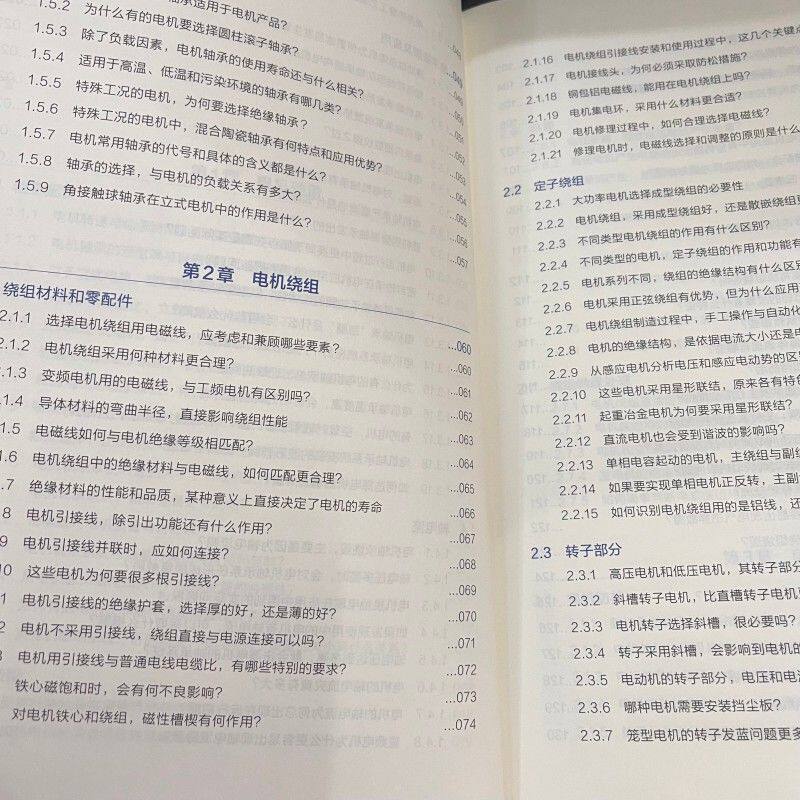 轴承适用于电机产品?
1.5.2 为什么有的电机要选择圆柱滚子轴承? ...050
1.5.3 除了负载因素,电机轴承的使用寿命还与什么相关? ...051
1.5.4 适用于高温、低温和污染环境的轴承有哪几类? ...052
1.5.5 特殊工况的电机,为何要选择绝缘轴承? ...053
1.5.6 特殊工况的电机中,混合陶瓷轴承有何特点和应用优势? ...054
1.5.7 电机常用轴承的代号和具体的含义都是什么? ...055
1.5.8 轴承的选择,与电机的负载关系有多大? ...056
1.5.9 角接触球轴承在立式电机中的作用是什么? ...057
第2章 电机绕组
绕组材料和零配件 ...060
2.1.1 选择电机绕组用电磁线,应考虑和兼顾哪些要素? ...060
2.1.2 电机绕组采用何种材料更合理? ...061
.1.3 变频电机用的电磁线,与工频电机有区别吗? ...062
.1.4 导体材料的弯曲半径,直接影响绕组性能 ...063
1.5 电磁线如何与电机绝缘等级相匹配? ...064
1.6 电机绕组中的绝缘材料与电磁线,如何匹配更合理? ...065
.7 绝缘材料的性能和品质,某种意义上直接决定了电机的寿命 ...066
8 电机引接线,除引出功能还有什么作用? ...067
9 电机引接线并联时,应如何连接? ...068
10 这些电机为何要很多根引接线? ...069
1 电机引接线的绝缘护套,选择厚的好,还是薄的好? ...070
2 电机不采用引接线,绕组直接与电源连接可以吗? ...071
3 电机用引接线与普通电线电缆比,有哪些特别的要求? ...072
铁心磁饱和时,会有何不良影响? ...073
对电机铁心和绕组,磁性槽楔有何作用? ...074
2.1.16 电机绕组引接线安装和使用过程中,这几个关键点
2.1.17 电机接线头,为何必须采取防松措施?
2.1.18 铜包铝电磁线,能用在电机绕组上吗?
2.1.19 电机集电环,采用什么材料更合适?
2.1.20 电机修理过程中,如何合理选择电磁线?
2.1.21 修理电机时,电磁线选择和调整的原则是什么
2.2 定子绕组
2.2.1 大功率电机选择成型绕组的必要性
2.2.2 电机绕组,采用成型绕组好,还是散嵌绕组更
2.2.3 不同类型电机绕组的作用有什么区别?
2.2.4 不同类型的电机,定子绕组的作用和功能有
2.2.5 电机系列不同,绕组的绝缘结构有什么区别
2.2.6 电机采用正弦绕组有优势,但为什么应用
2.2.7 电机绕组制造过程中,手工操作与自动化
2.2.8 电机的绝缘结构,是依据电流大小还是电
2.2.9 从感应电机分析电压和感应电动势的区
2.2.10 这些电机采用星形联结,原来各有特色
2.2.11 起重冶金电机为何要采用星形联结?
2.2.12 直流电机也会受到谐波的影响吗?
2.2.13 单相电容起动的电机,主绕组与副绕
2.2.14 如果要实现单相电机正反转,主副
2.2.15 如何识别电机绕组用的是铝线,还
2.3 转子部分
2.3.1 高压电机和低压电机,其转子部分
2.3.2 斜槽转子电机,比直槽转子电机
2.3.3 电机转子选择斜槽,很必要吗?
2.3.4 转子采用斜槽,会影响到电机的
2.3.5 电动机的转子部分,电压和电流
2.3.6 哪种电机需要安装挡尘板?
2.3.7 笼型电机的转子发蓝问题更多